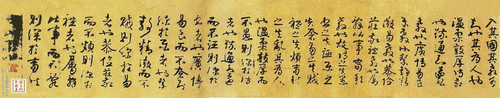 入其國其教可
知也其為人也
溫柔敦厚詩教
也疏通知遠書
教也廣博易良
樂教也絜靜精
微易教也恭儉
莊敬禮教也屬
辭比事春秋教
也故詩之失愚
書之失誣樂之
失奢易之失賊
禮之失煩春秋
之失亂其為人
也溫柔敦厚而
不愚則深於詩
者也疏通知遠
而不誣則深於
書者也廣博
易良而不奢則
深於樂者也絜
靜精微而不
賊則深於易
者也恭儉莊敬
而不煩則深於
禮者也屬辭
比事而不亂
則深於春秋